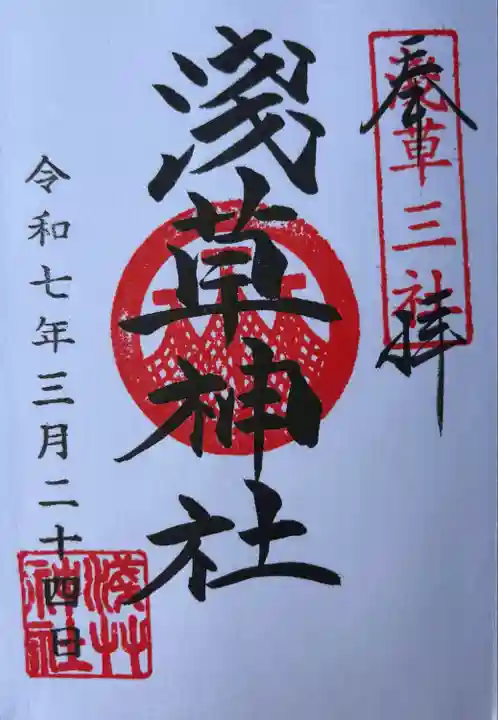 奉拝
浅草三社
淺草神社
令和七年三月二十四日
淺草神社